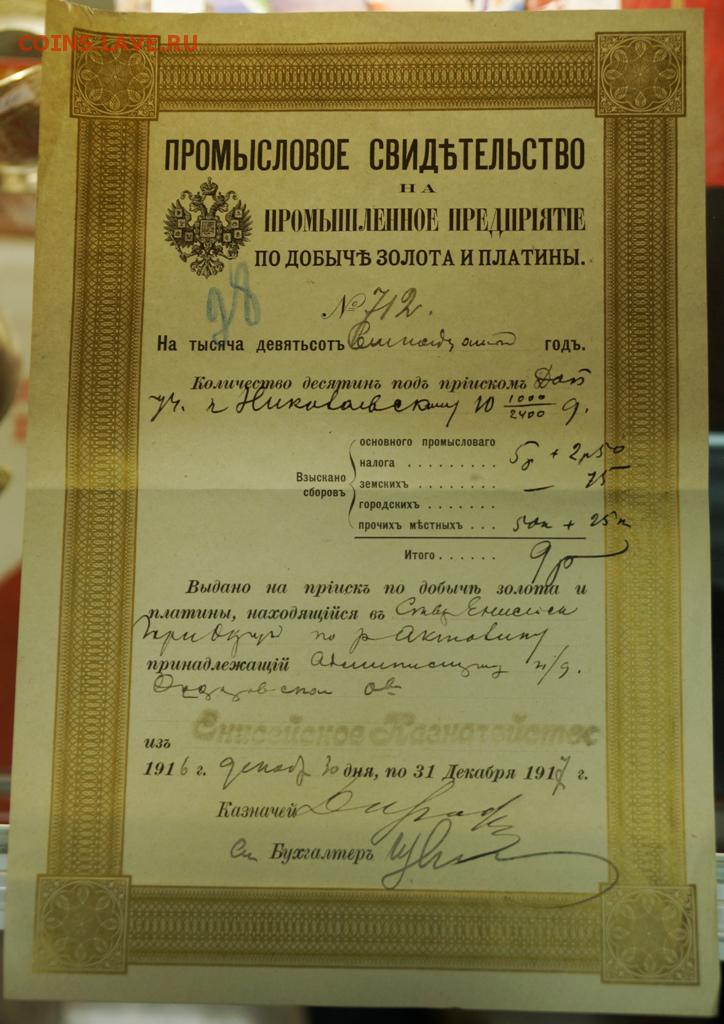 COINS.LAVE.RU
ПРОМЫСЛОВОЕ СВИДѢТЕЛЬСТВО
НА
ПРОМЫШЛЕННОЕ ПРЕДПРІЯТІЕ
ПО ДОБЫЧѢ ЗОЛОТА И ПЛАТИНЫ.
98
№ 712.
На тысяча девятьсотъ годъ.
Количество десятинъ подъ пріискомъ
уч. Николаевскому 10 1000/2400 д.
основного промысловаго
налога . . . . . . . . . 5р + 2р50
Взыскано сборовъ
земскихъ . . . . . . . . — 75
городскихъ . . . . . . .
прочихъ мѣстныхъ . . . 50к + 25к
Итого . . . . . . 9р
Выдано на пріискъ по добычѣ золота и
платины, находящійся въ Енисейск
по р
принадлежащій н/д.
Енисейское Казначейство
изъ
1916 г. декаб 30 дня, по 31 Декабря 1917 г.
Казначей
Бухгалтеръ